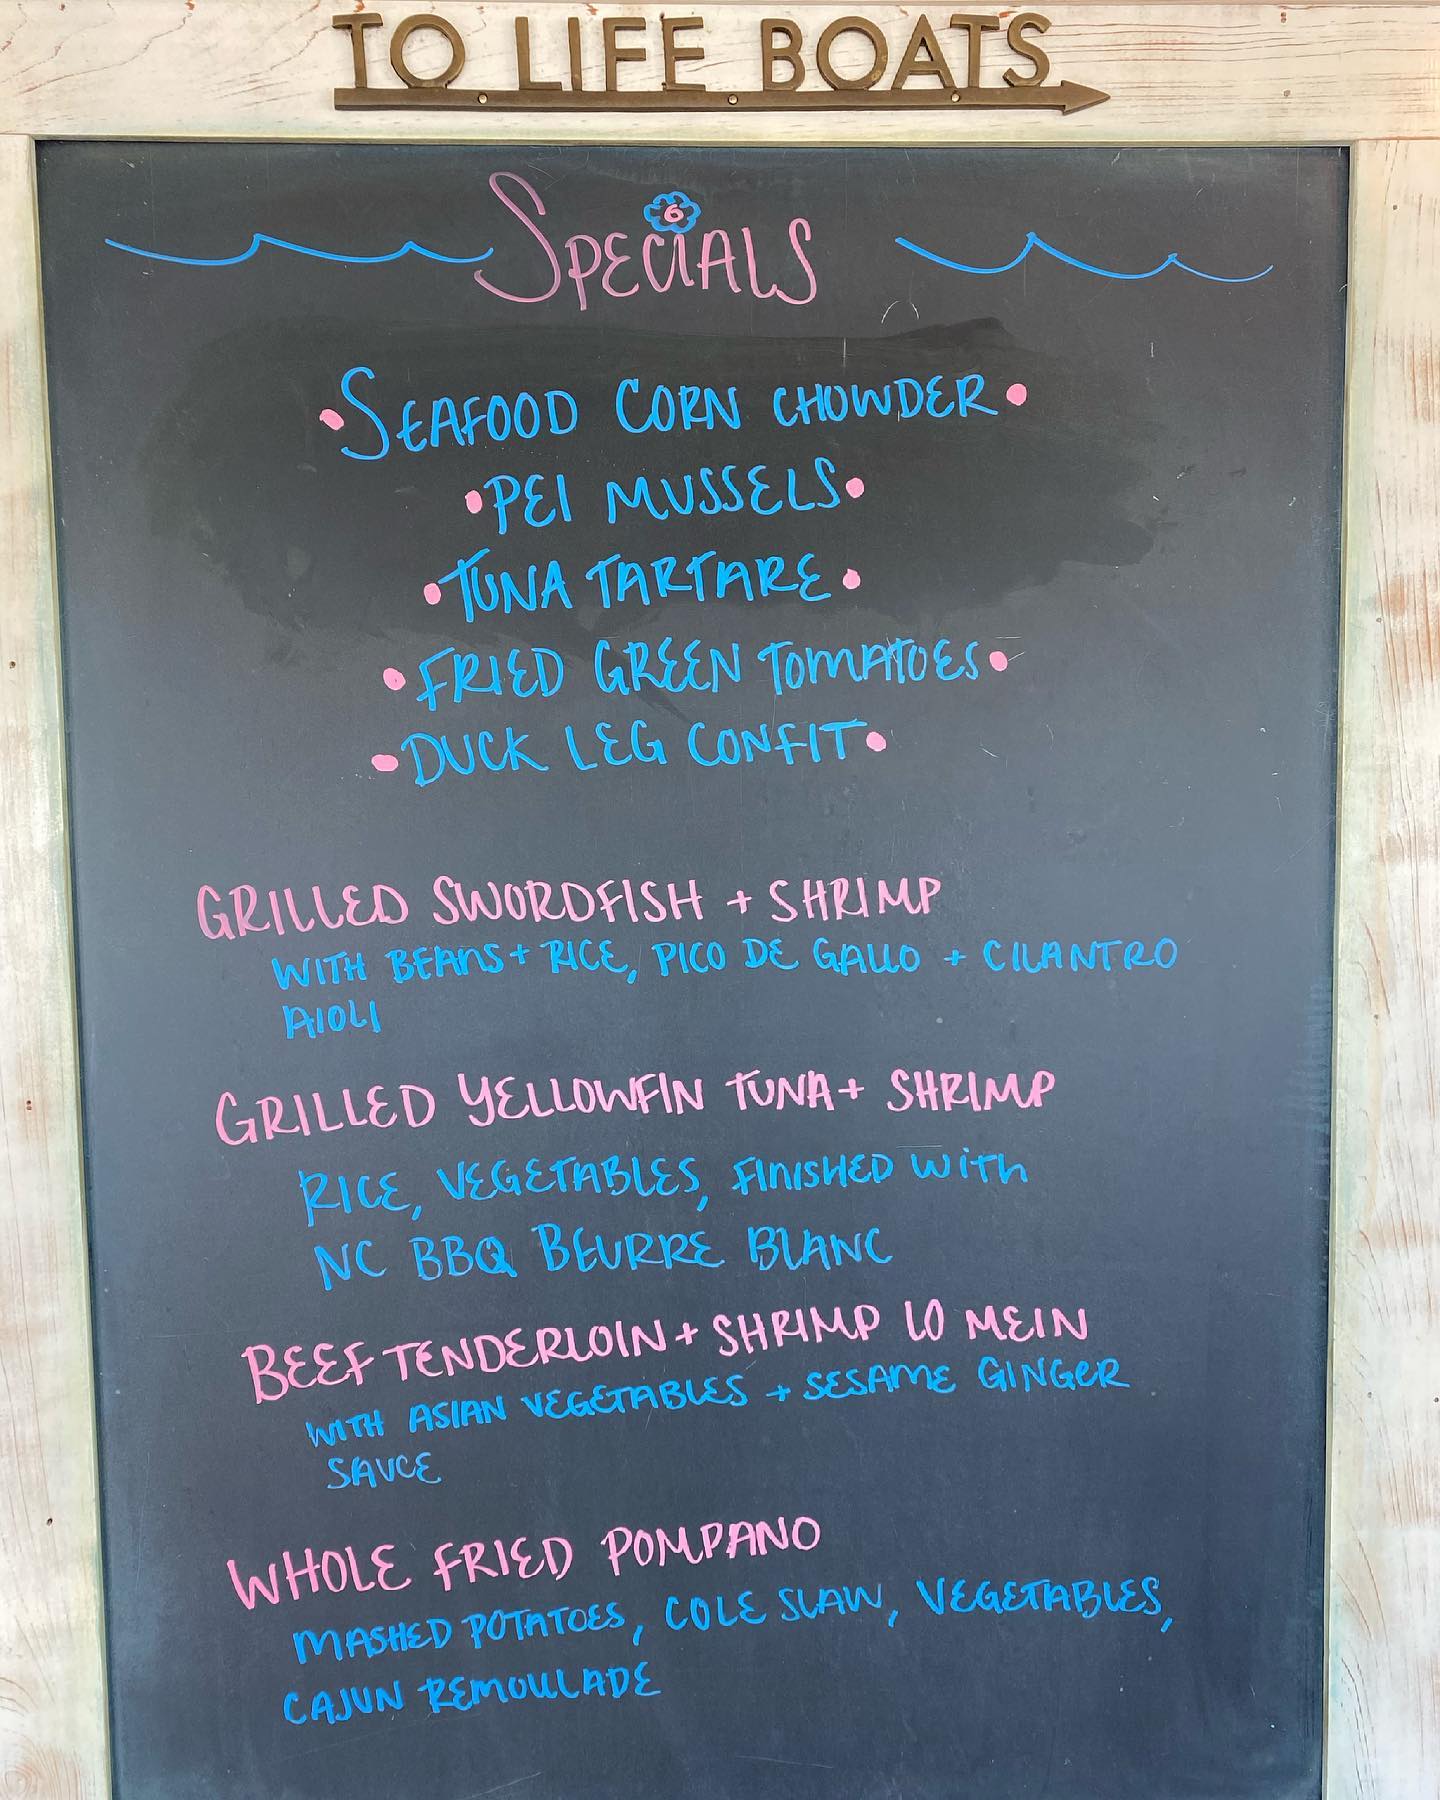 TO LIFE BOATS
6
SPECIALS
•SEAFOOD CORN CHOWDER•
•PEI MUSSELS•
•TUNA TARTARE•
•FRIED GREEN TOMATOES•
•DUCK LEG CONFIT•
GRILLED SWORDFISH + SHRIMP
WITH BEANS + RICE, PICO DE GALLO + CILANTRO
AIOLI
GRILLED YELLOWFIN TUNA + SHRIMP
RICE, VEGETABLES, FINISHED WITH
NC BBQ BEURRE BLANC
BEEF TENDERLOIN + SHRIMP LO MEIN
WITH ASIAN VEGETABLES + SESAME GINGER
SAUCE
WHOLE FRIED POMPANO
MASHED POTATOES, COLE SLAW, VEGETABLES,
CAJUN REMOULADE